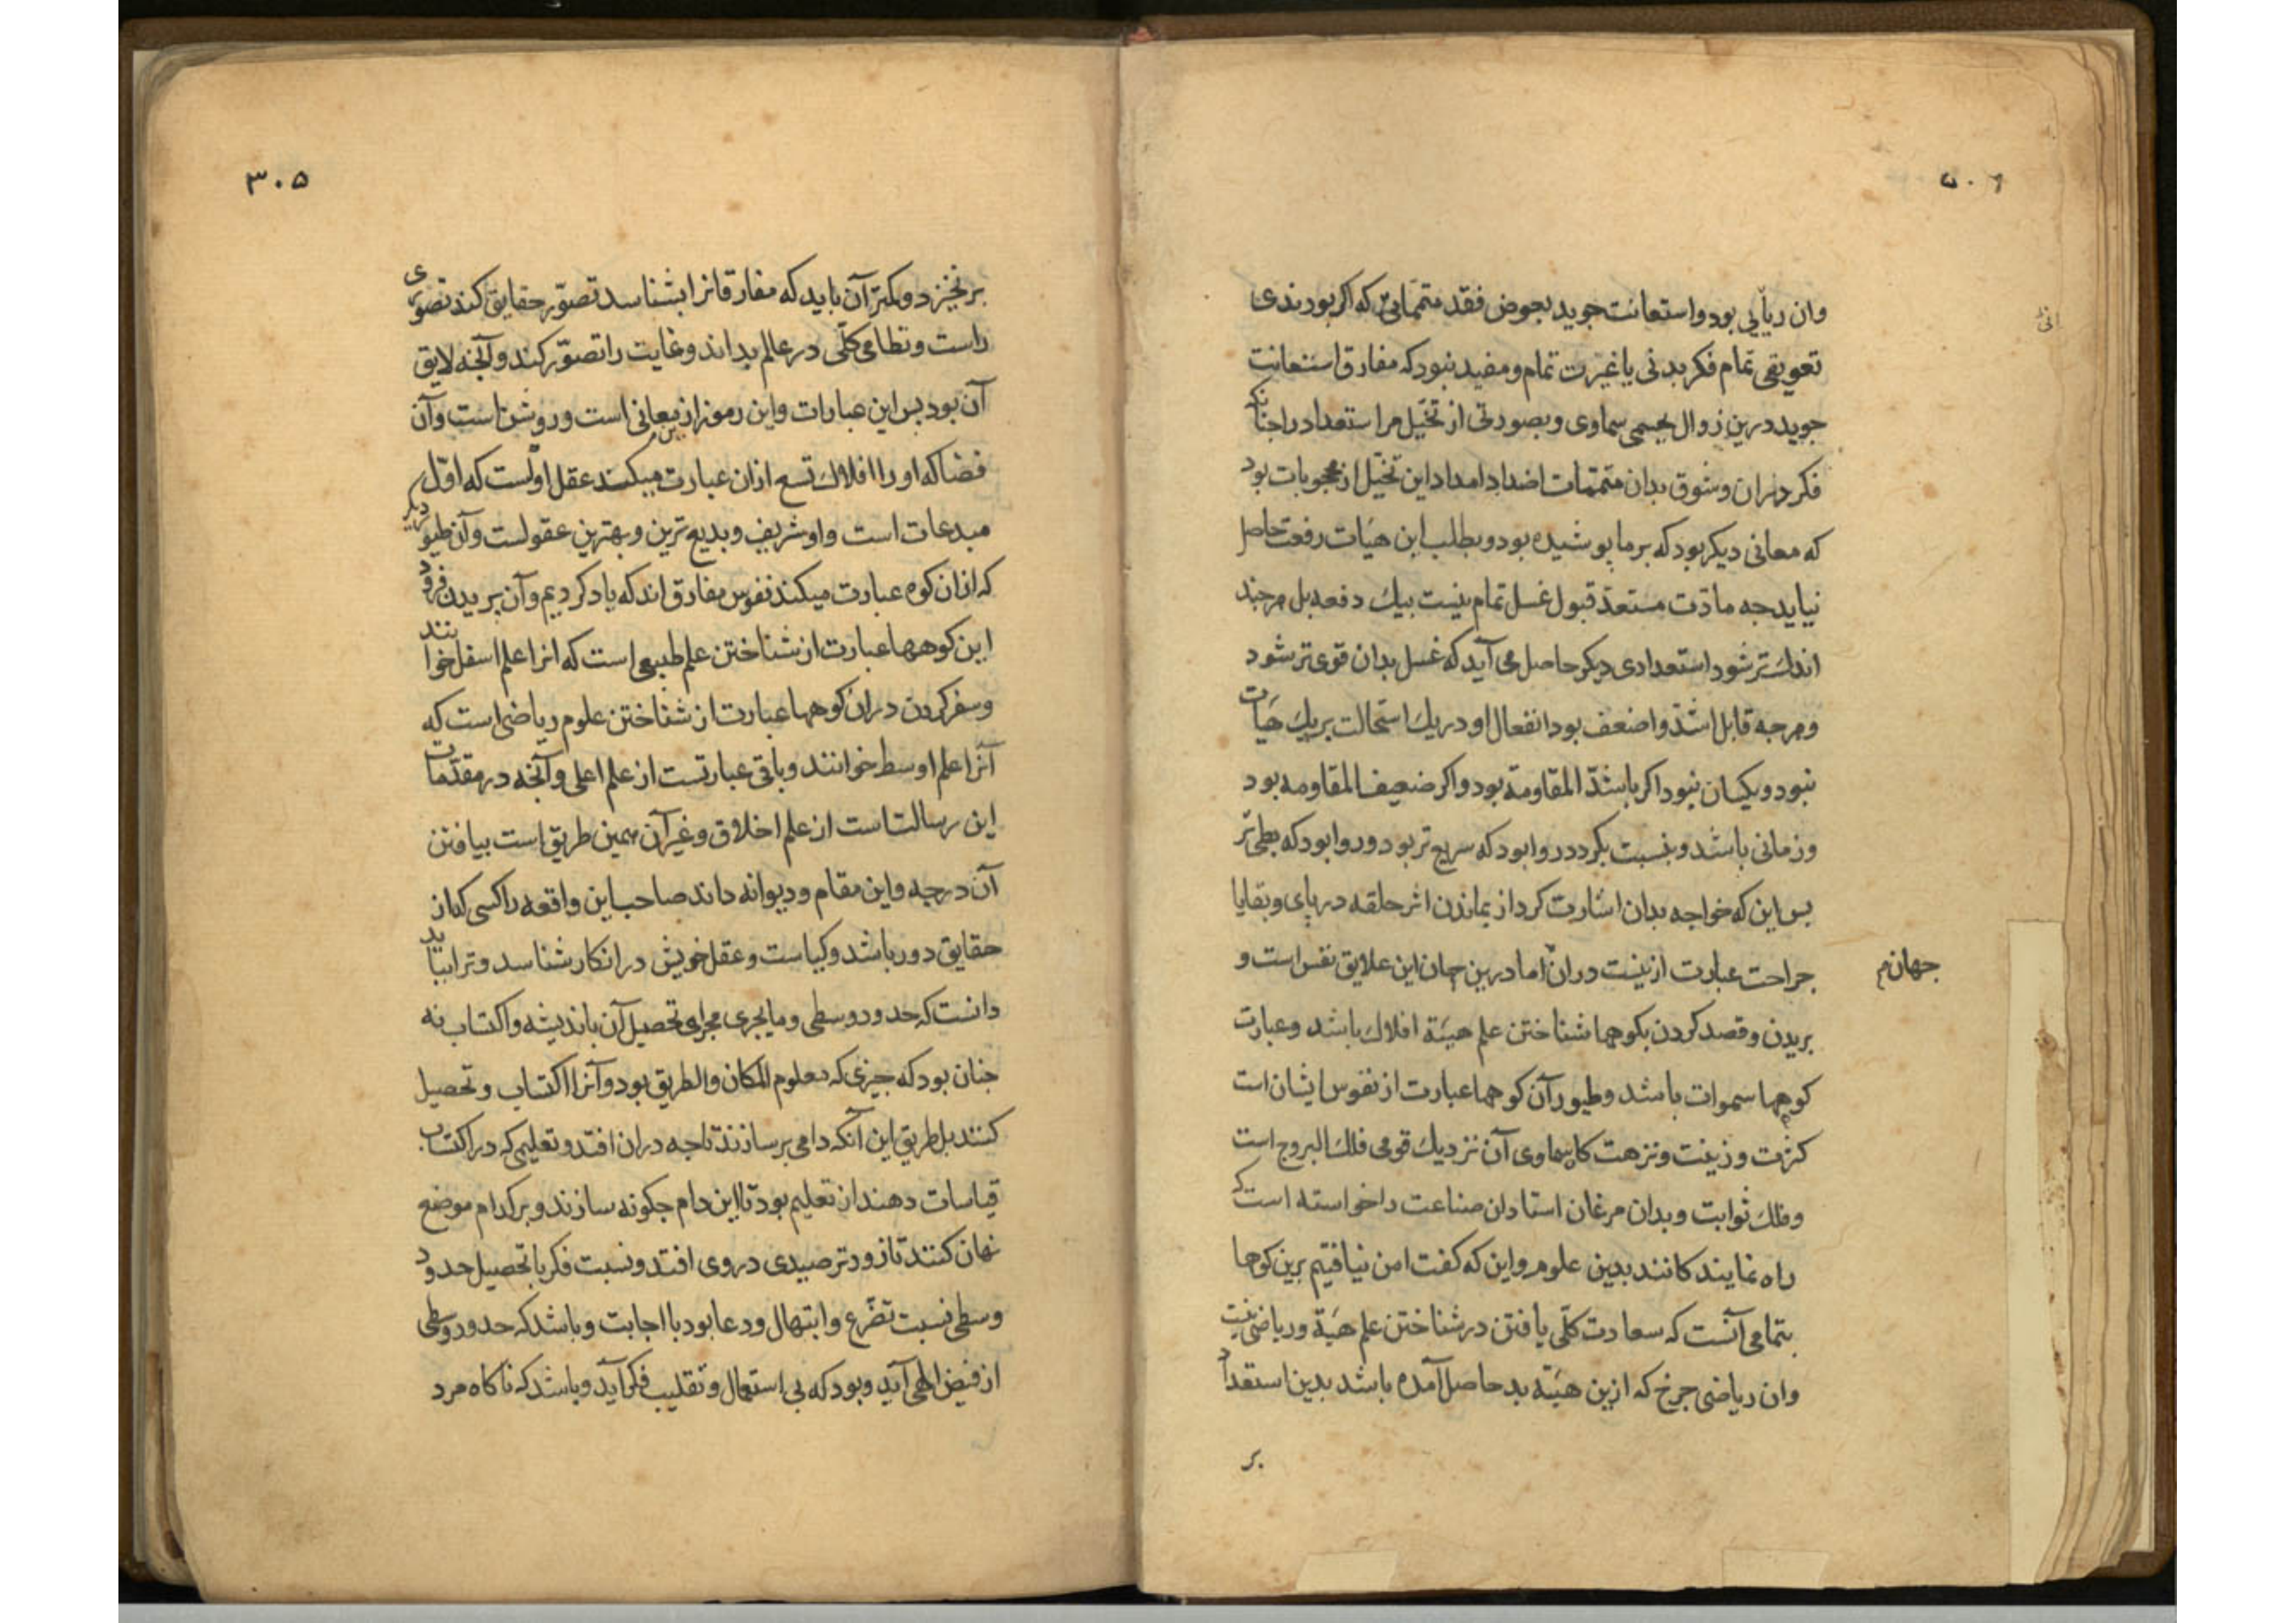 وان ریائی بود و استعانت جوید بعوض فقد متممانی که اگر بودندی
تعویقی تمام فکر بدنی یا غیرت تمام و مفید نبود که مفارق استعانت
جوید درین زوال بجسمی سماوی و بصورتی از تخیّل مر استعداد را جنانک
فکر دران و شوق بدان متممات اضداد امداد این تخیّل از محجوبات بود
که معانی دیکر بود که بر ما پوشیده بود و بطلب این هیَات رفعت حاصل
نیاید جه مادّت مستعدّ قبول غسل تمام نیست بیک دفعه بل هرجند
اندک تر شود استعدادی دیکر حاصل می آید که غسل بدان قوی تر شود
و هرجه قابل اشدّ و اضعف بود انفعال او در یک استحالت بر یک هیَات
نبود و یکسان نبود اکر باشدّ المقاومة بود و اکر ضعیف المقاومه بود
و زمانی باشد و بنسبت بکردد روا بود که سریع تر بود و روا بود که بطی تر
بس این که خواجه بدان اشارت کرد از بماندن اثر حلقه در پای و بقایا
جراحت عبارت ازینست در ان اما درین جهان این علایق نفس است و
جهان م
بریدن و قصد کردن بکوهها شناختن علم هیَئة افلاک باشد و عبارت
کوهها سموات باشد و طیور آن کوهها عبارت از نفوس ایشان است
کثرت و زینت و نزهت کا سماوی آن نزدیک قومی فلک البروج است
و فلک ثوابت و بدان مرغان استادان صناعت را خواسته است که
راه نمایند کانند بدین علوم و این که کفت امن نیافتیم برین کوهها
بتمامی آنست که سعادت کلّی یافتن در شناختن علم هیَئة و ریاضی نیست
وان ریاضی جرخ که ازین هیَئة بد حاصل آمده باشد بدین استعداد
بر
۳۰۵
برنخیزد و مکتر آن باید که مفارقانرا بشناسد تصوّر حقایق کند تصوّری
راست و نظامی کلّی در عالم بداند و غایت را تصوّر کند و آنجه لایق
آن بود بس این عبارات و این رموز ازین معانی است و روشن است و آن
فضا که او را افلاک تسع ازان عبارت میکند عقل اوّلست که اوّل
مبدعات است و او شریف و بدیع ترین و بهترین عقولست و آن طیور دیکر
که ازان کوه عبارت میکند نفوس مفارق اند که یاد کردیم و آن بریدن فرود
این کوهها عبارت از شناختن علم طبیعی است که انرا علم اسفل خوانند
و سفر کردن دران کوهها عبارت از شناختن علوم ریاضی است که
آنرا علم اوسط خوانند و باقی عبارتست از علم اعلی و آنجه در مقدّمات
این رسالت است از علم اخلاق و غیر آن همین طریق است بیافتن
آن درجه و این مقام و دیوانه داند صاحب این واقعه را کسی کاز
حقایق دور باشد و کیاست و عقل خویش در انکار شناسد و ترا بباید
دانست که حدود وسطی و مایجری مجرای تحصیل آن باندیشه و اکتساب نه
جنان بود که جیزی که معلوم المکان والطریق بود و آنرا اکتساب و تحصیل
کنند بل طریق این آنکه دامی بر سازند تاجه دران افتد و تعلیمی که در اکتساب
قیاسات دهند از تعلیم بود تا این دام جکونه سازند و بر کدام موضع
نهان کنند تا زودتر صیدی در وی افتد و نسبت فکر با تحصیل حدود
وسطی نسبت تضرّع و ابتهال و دعا بود با اجابت و باشد که حدود وسطی
از فیض الهی آید و بود که بی استعمال و تقلیب فکر آید و باشد که ناکاه مرد